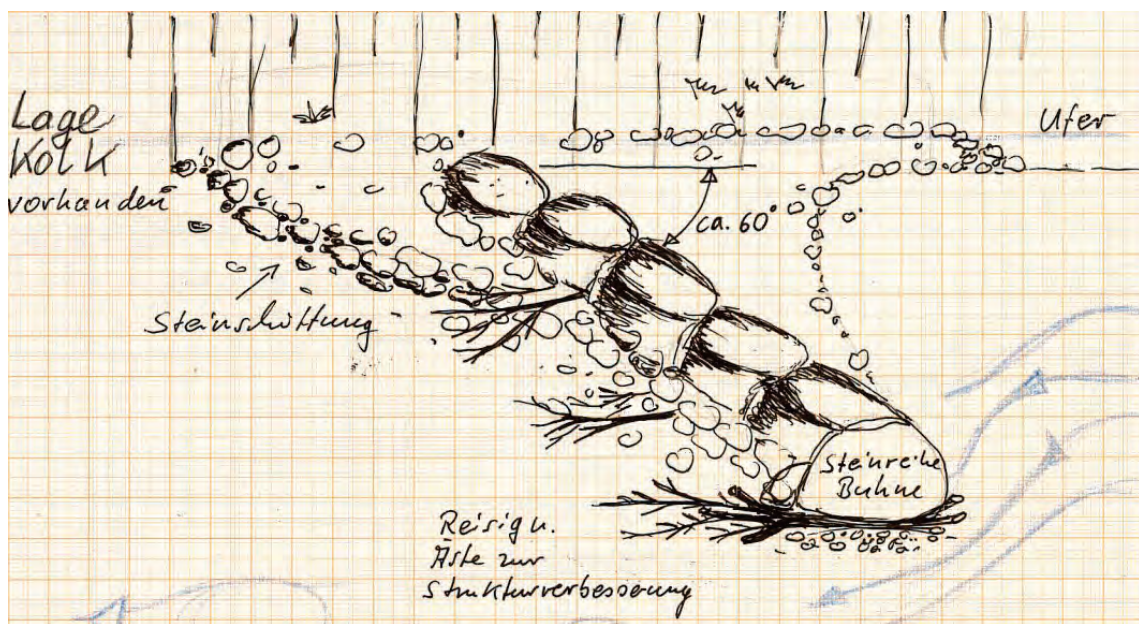 Lage
Kolk
vorhanden
Ufer
ca. 60°
Steinschüttung
Steinreihe
Buhne
Reisig u.
Äste zur
Strukturverbesserung